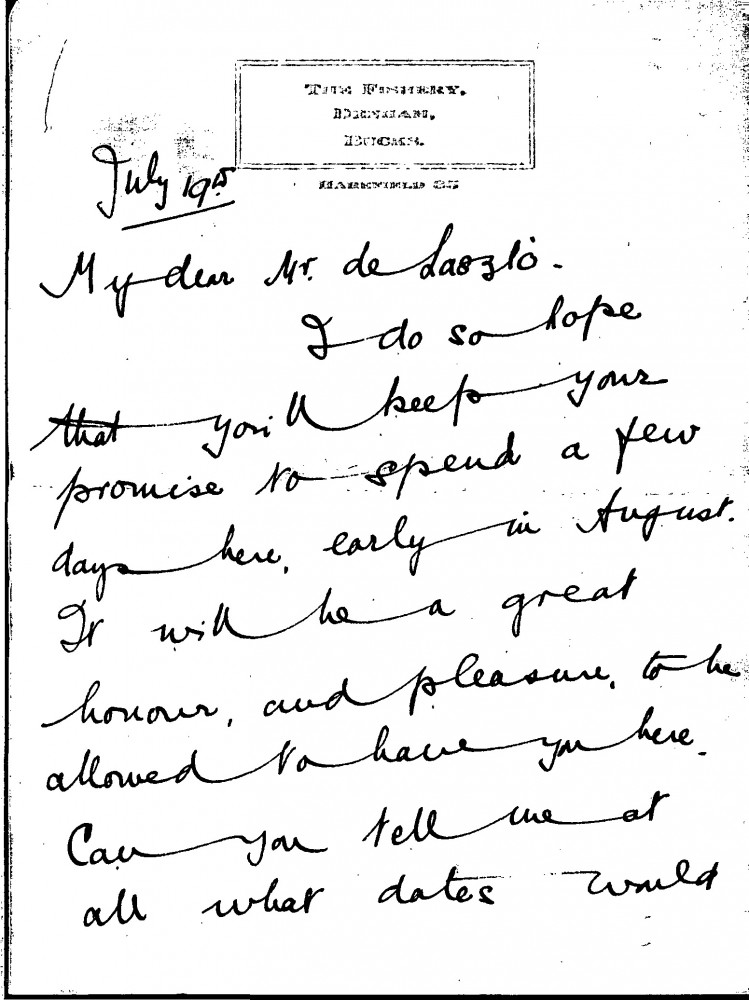 THE FISHERY,
DENHAM,
BUCKS.
HAREFIELD 85
July 19th
My dear Mr. de Laszlò.
I do so hope
that you'll keep your
promise to spend a few
days here, early in August.
It will be a great
honour, and pleasure, to be
allowed to have you here.
Can you tell me at
all what dates would